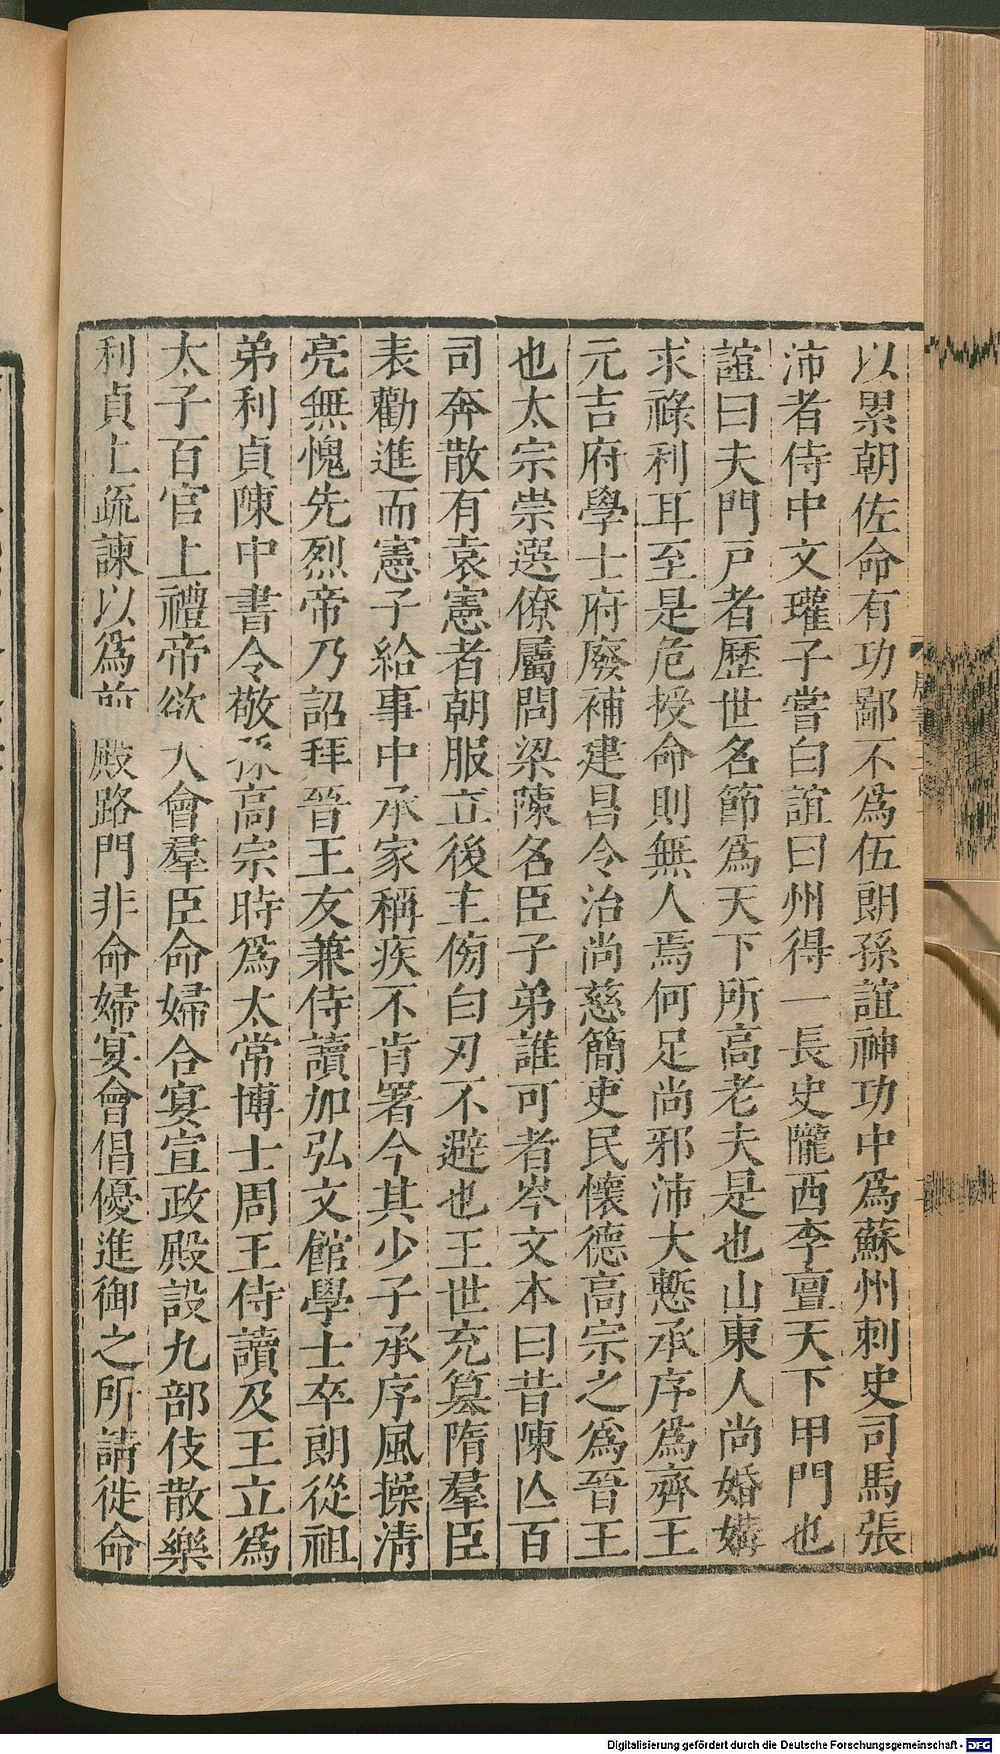 以累朝佐命有功鄙不爲伍朗孫誼神功中爲蘇州刺史司馬張
沛者侍中文瓘子嘗白誼曰州得一長史隴西李亶天下甲門也
誼曰夫門戸者歷世名節爲天下所高老夫是也山東人尚婚媾
求祿利耳至是危授命則無人焉何足尚邪沛大慙承序爲齊王
元吉府學士府廢補建昌令治尚慈簡吏民懷德高宗之爲晉王
也太宗崇選僚屬問梁陳名臣子弟誰可者岑文本曰昔陳亾百
司奔散有袁憲者朝服立後主傍白刃不避也王世充篡隋羣臣
表勸進而憲子給事中承家稱疾不肯署今其少子承序風操淸
亮無愧先烈帝乃詔拜晉王友兼侍讀加弘文館學士卒朗從祖
弟利貞陳中書令敬孫高宗時爲太常博士周王侍讀及王立爲
太子百官上禮帝欲大會羣臣命婦合宴宣政殿設九部伎散樂
利貞上疏諫以爲前殿路門非命婦宴會倡優進御之所請徙命
Digitalisierung gefördert durch die Deutsche Forschungsgemeinschaft - DFG